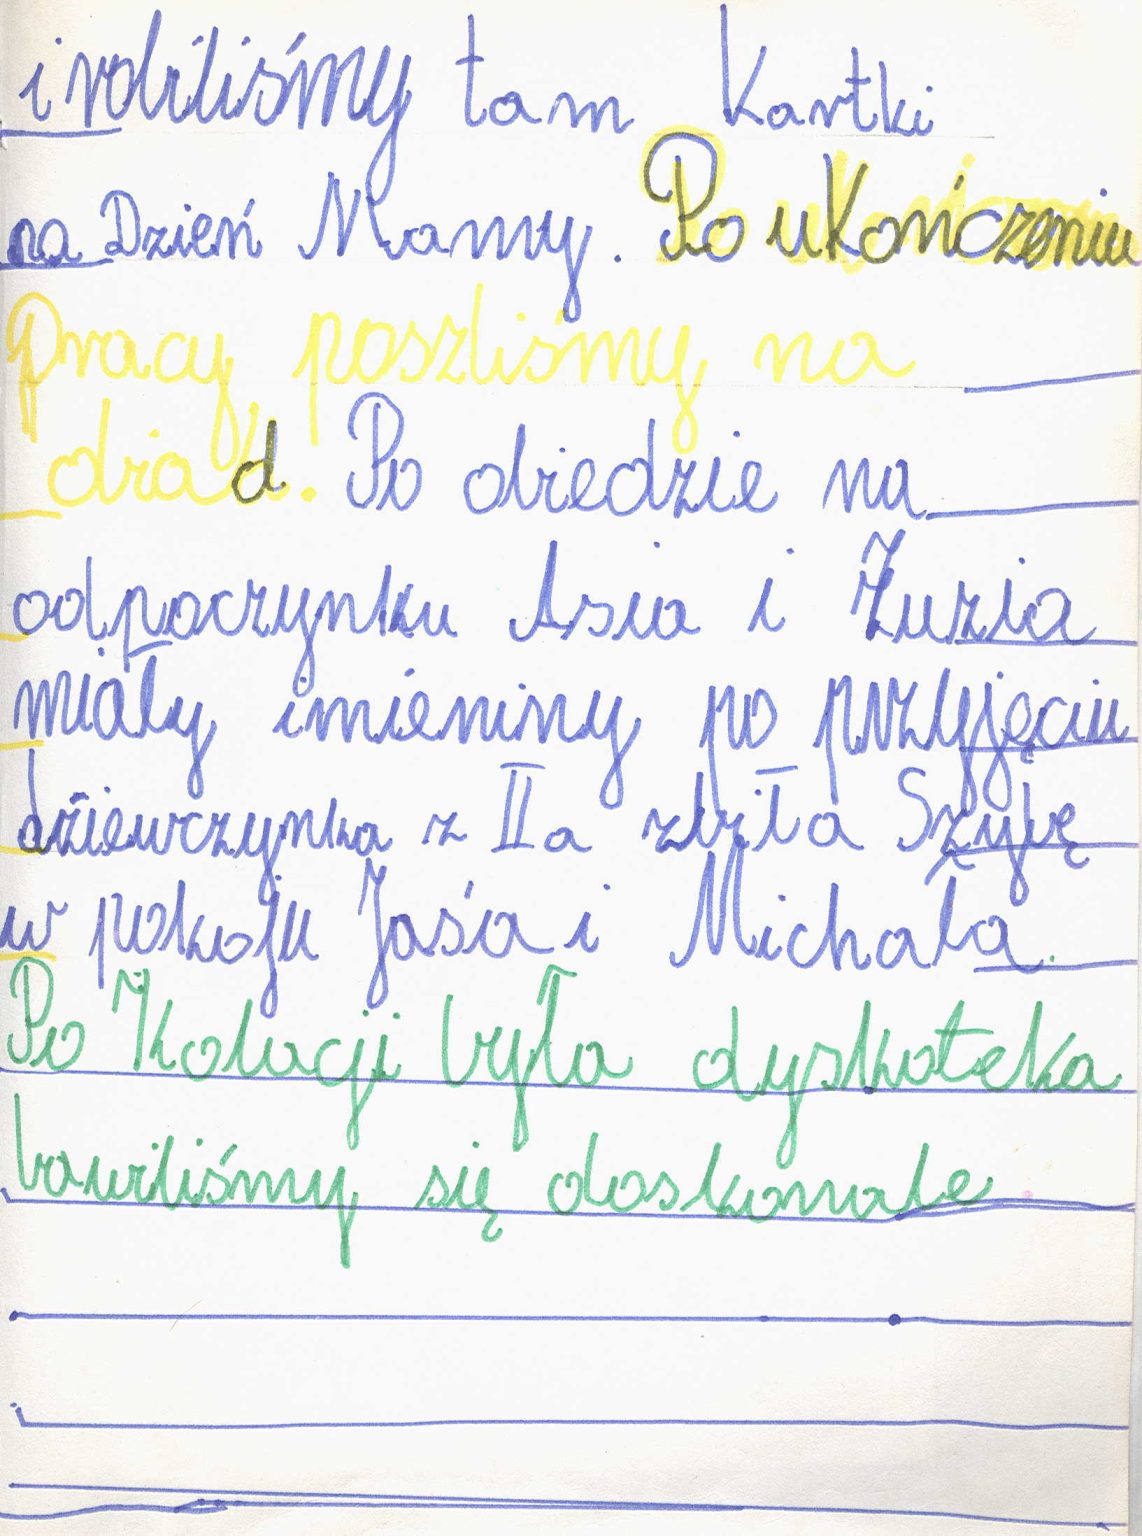 i robiliśmy tam Kartki
na Dzień Mamy. Po uKończeniu
Pracy poszliśmy na
obiad. Po obiedzie na
odpoczynku Asia i Zuzia
miały imieniny po przyjęciu
dziewczynka z IIa zbiła Szybę
w pokoju Jasia i Michała.
Po Kolacji była dyskoteka
bawiliśmy się doskonale